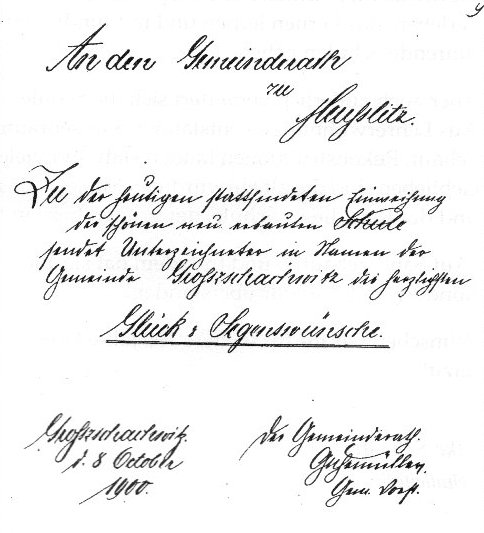 An den Gemeinderath
zu
Naußlitz.
Zu der heutigen stattfindeten Einweihung
der schönen neu erbauten Schule
sendet Unterzeichneter in Namen der
Gemeinde Großzschachwitz die herzlichsten
Glück & Segenswünsche.
Großzschachwitz.
d. 8 October
1900.
Der Gemeinderath.
Gem. Vorst.